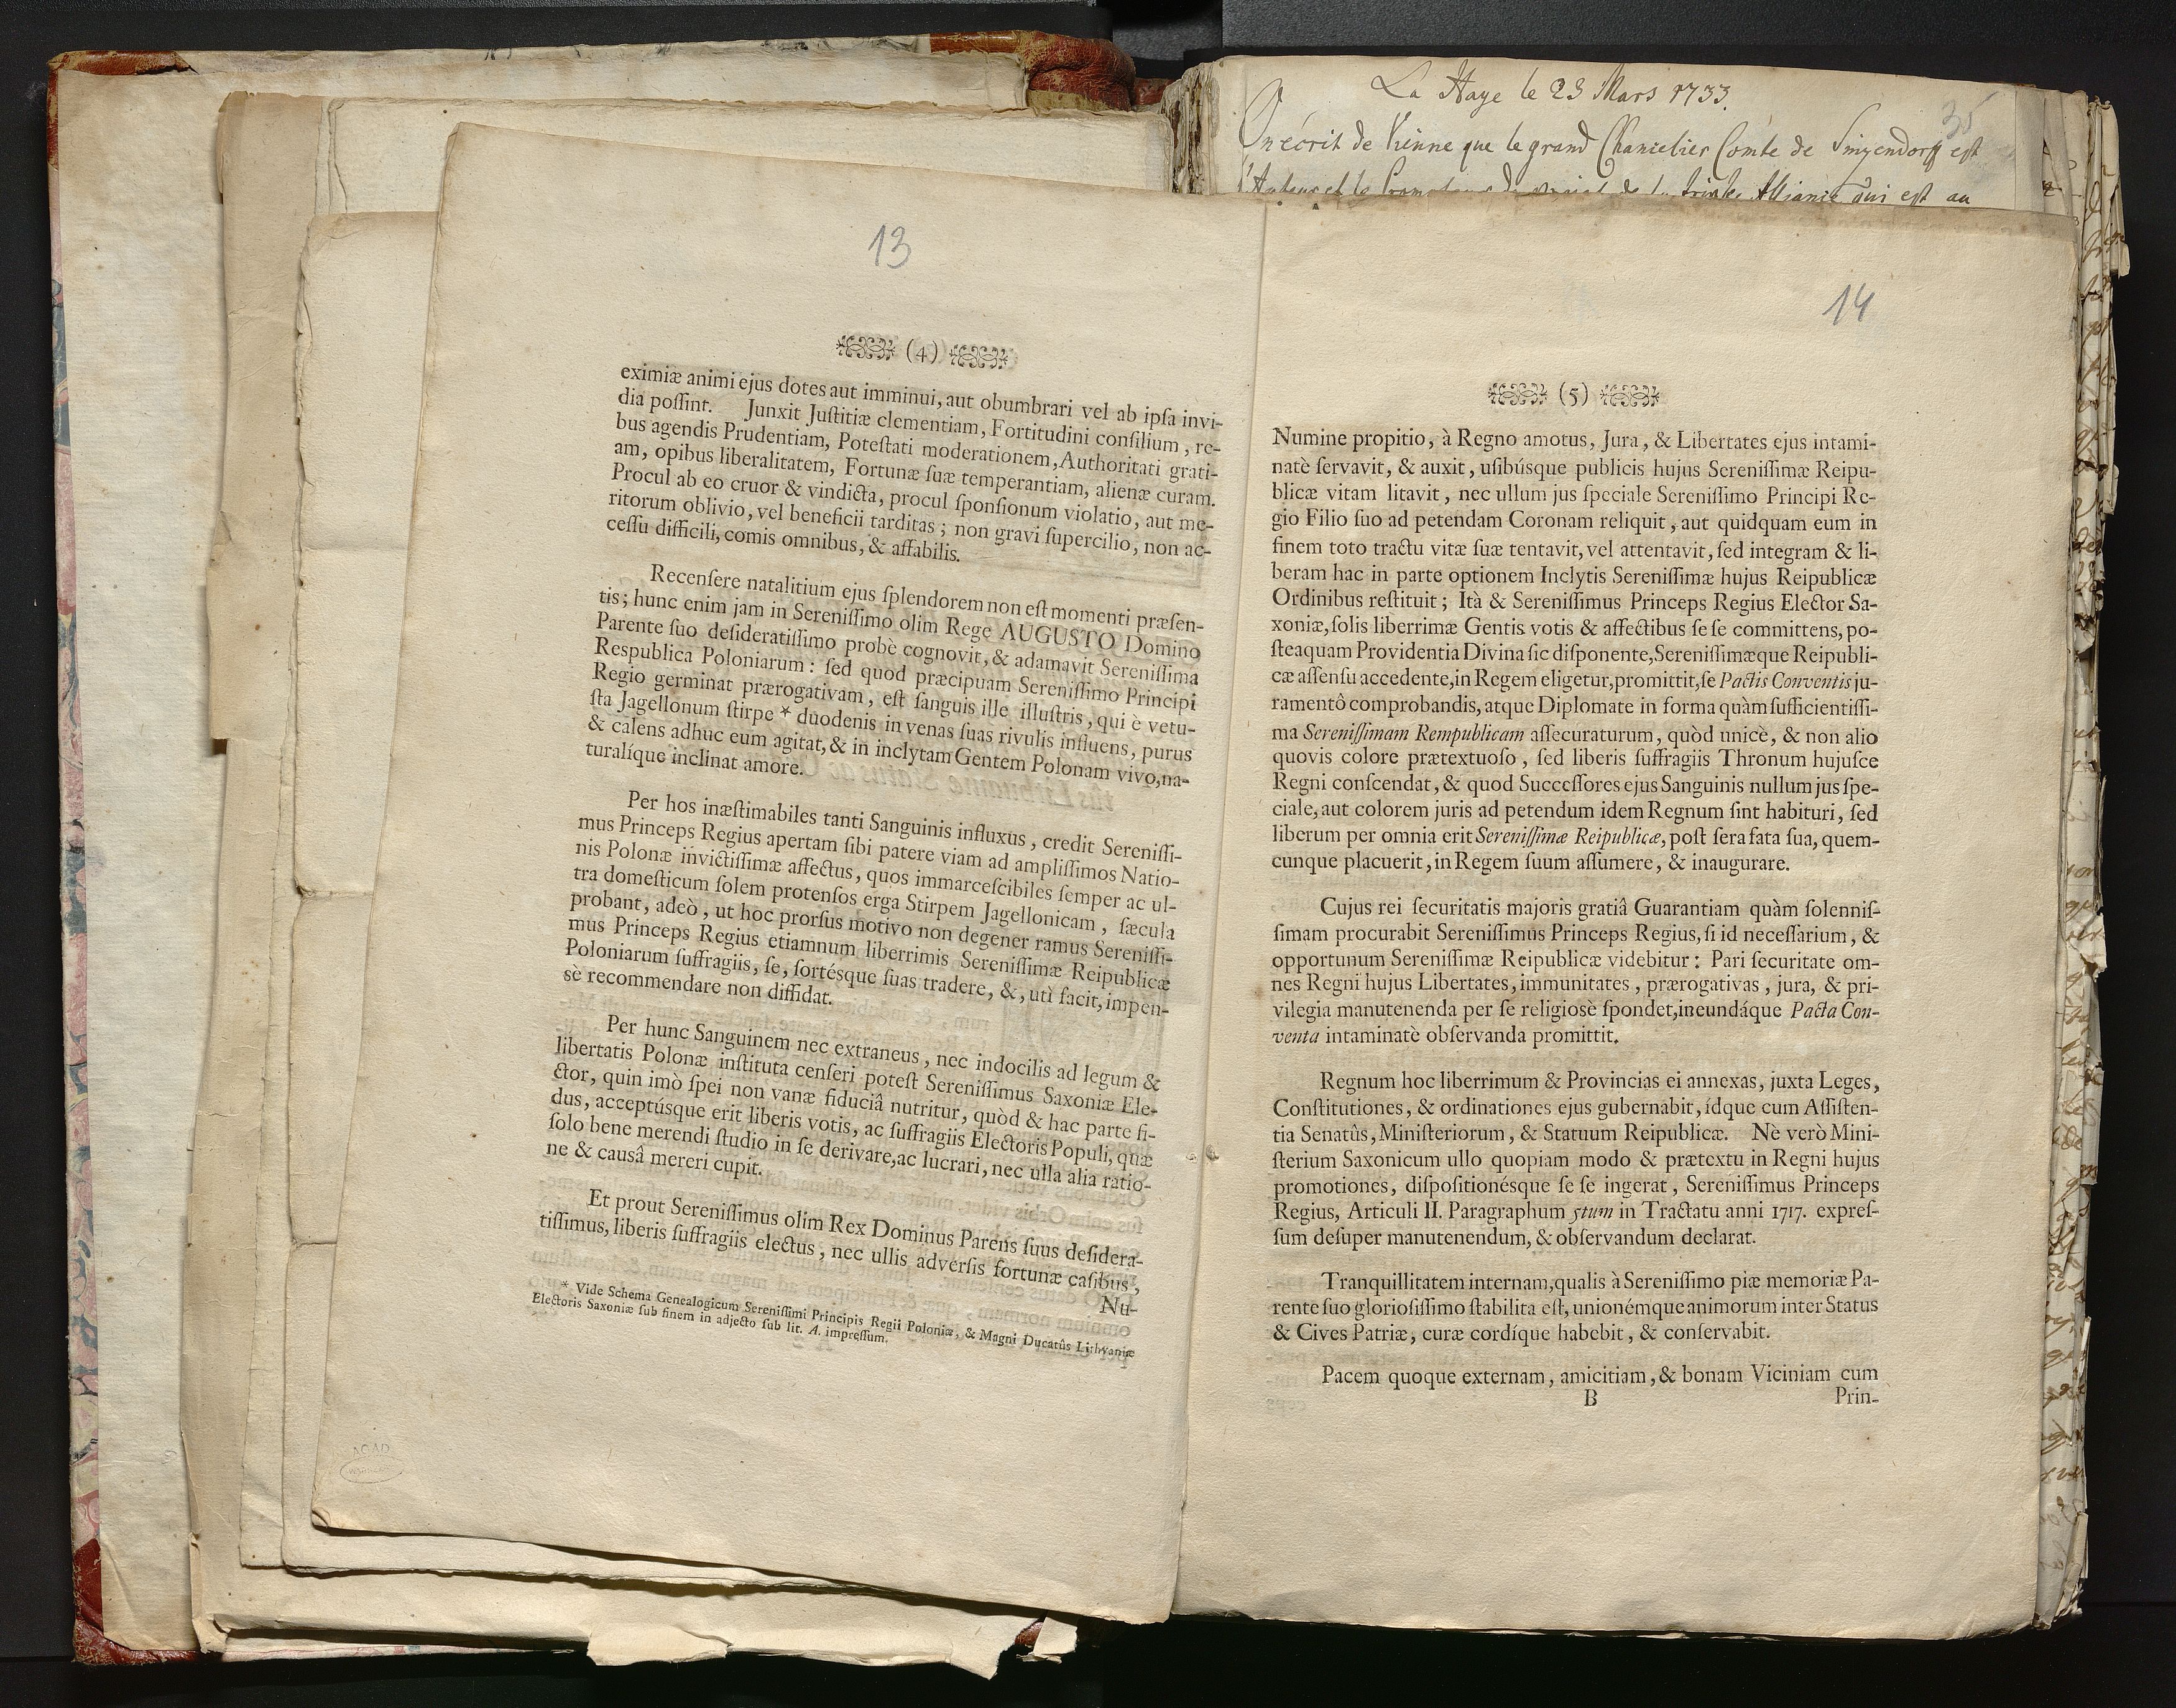 La Haye le 23 Mars 1733.
35
On écrit de Vienne que le grand Chancelier Comte de Sinzendorff est
l'Auteur et le de la triple Alliance qui est au
13
(4)
eximiæ animi ejus dotes aut imminui, aut obumbrari vel ab ipſa invi-
dia poſſint. Junxit Juſtitiæ clementiam, Fortitudini conſilium, re-
bus agendis Prudentiam, Poteſtati moderationem, Authoritati grati-
am, opibus liberalitatem, Fortunæ ſuæ temperantiam, alienæ curam.
Procul ab eo cruor & vindicta, procul ſponſionum violatio, aut me-
ritorum oblivio, vel beneficii tarditas; non gravi ſupercilio, non ac-
ceſſu difficili, comis omnibus, & affabilis.
Recenſere natalitium ejus ſplendorem non eſt momenti præſen-
tis; hunc enim jam in Sereniſſimo olim Rege AUGUSTO Domino
Parente ſuo deſideratiſſimo probè cognovit, & adamavit Sereniſſima
Respublica Poloniarum: ſed quod præcipuam Sereniſſimo Principi
Regio germinat prærogativam, eſt ſanguis ille illuſtris, qui è vetu-
ſta Jagellonum ſtirpe * duodenis in venas ſuas rivulis influens, purus
& calens adhuc eum agitat, & in inclytam Gentem Polonam vivo, na-
turalíque inclinat amore.
Per hos inæſtimabiles tanti Sanguinis influxus, credit Sereniſſi-
mus Princeps Regius apertam ſibi patere viam ad ampliſſimos Natio-
nis Polonæ invictiſſimæ affectus, quos immarceſcibiles ſemper ac ul-
tra domeſticum ſolem protenſos erga Stirpem Jagellonicam, ſæcula
probant, adeò, ut hoc prorſus motivo non degener ramus Sereniſſi-
mus Princeps Regius etiamnum liberrimis Sereniſſimæ Reipublicæ
Poloniarum ſuffragiis, ſe, ſortésque ſuas tradere, &, utì facit, impen-
sè recommendare non diffidat.
Per hunc Sanguinem nec extraneus, nec indocilis ad legum &
libertatis Polonæ inſtituta cenſeri poteſt Sereniſſimus Saxoniæ Ele-
ctor, quin imò ſpei non vanæ fiduciâ nutritur, quòd & hac parte fi-
dus, acceptúsque erit liberis votis, ac ſuffragiis Electoris Populi, quæ
ſolo bene merendi ſtudio in ſe derivare, ac lucrari, nec ulla alia ratio-
ne & causâ mereri cupit.
Et prout Sereniſſimus olim Rex Dominus Parens ſuus deſidera-
tiſſimus, liberis ſuffragiis electus, nec ullis adverſis fortunæ caſibus,
Nu-
* Vide Schema Genealogicum Sereniſſimi Principis Regii Poloniæ, & Magni Ducatûs Lithvaniæ
Electoris Saxoniæ ſub finem in adjecto ſub lit. A. impreſſum.
14
(5)
Numine propitio, à Regno amotus, Jura, & Libertates ejus intami-
natè ſervavit, & auxit, uſibúsque publicis hujus Sereniſſimæ Reipu-
blicæ vitam litavit, nec ullum jus ſpeciale Sereniſſimo Principi Re-
gio Filio ſuo ad petendam Coronam reliquit, aut quidquam eum in
finem toto tractu vitæ ſuæ tentavit, vel attentavit, ſed integram & li-
beram hac in parte optionem Inclytis Sereniſſimæ hujus Reipublicæ
Ordinibus reſtituit; Ità & Sereniſſimus Princeps Regius Elector Sa-
xoniæ, ſolis liberrimæ Gentis votis & affectibus ſe ſe committens, po-
ſteaquam Providentia Divina ſic diſponente, Sereniſſimæque Reipubli-
cæ aſſenſu accedente, in Regem eligetur, promittit, ſe Pactis Conventis ju-
ramentô comprobandis, atque Diplomate in forma quàm ſufficientiſſi-
ma Sereniſſimam Rempublicam aſſecuraturum, quòd unicè, & non alio
quovis colore prætextuoſo, ſed liberis ſuffragiis Thronum hujuſce
Regni conſcendat, & quod Succeſſores ejus Sanguinis nullum jus ſpe-
ciale, aut colorem juris ad petendum idem Regnum ſint habituri, ſed
liberum per omnia erit Sereniſſimæ Reipublicæ, poſt ſera fata ſua, quem-
cunque placuerit, in Regem ſuum aſſumere, & inaugurare.
Cujus rei ſecuritatis majoris gratiâ Guarantiam quàm ſolenniſ-
ſimam procurabit Sereniſſimus Princeps Regius, ſi id neceſſarium, &
opportunum Sereniſſimæ Reipublicæ videbitur: Pari ſecuritate om-
nes Regni hujus Libertates, immunitates, prærogativas, jura, & pri-
vilegia manutenenda per ſe religiosè ſpondet, ineundáque Pacta Con-
venta intaminatè obſervanda promittit.
Regnum hoc liberrimum & Provincias ei annexas, juxta Leges,
Conſtitutiones, & ordinationes ejus gubernabit, ídque cum Aſſiſten-
tia Senatûs, Miniſteriorum, & Statuum Reipublicæ. Nè verò Mini-
ſterium Saxonicum ullo quopiam modo & prætextu in Regni hujus
promotiones, diſpoſitionésque ſe ſe ingerat, Sereniſſimus Princeps
Regius, Articuli II. Paragraphum 5tum in Tractatu anni 1717. expreſ-
ſum deſuper manutenendum, & obſervandum declarat.
Tranquillitatem internam, qualis à Sereniſſimo piæ memoriæ Pa-
rente ſuo glorioſiſſimo ſtabilita eſt, unionémque animorum inter Status
& Cives Patriæ, curæ cordíque habebit, & conſervabit.
Pacem quoque externam, amicitiam, & bonam Viciniam cum
B Prin-
AGAD